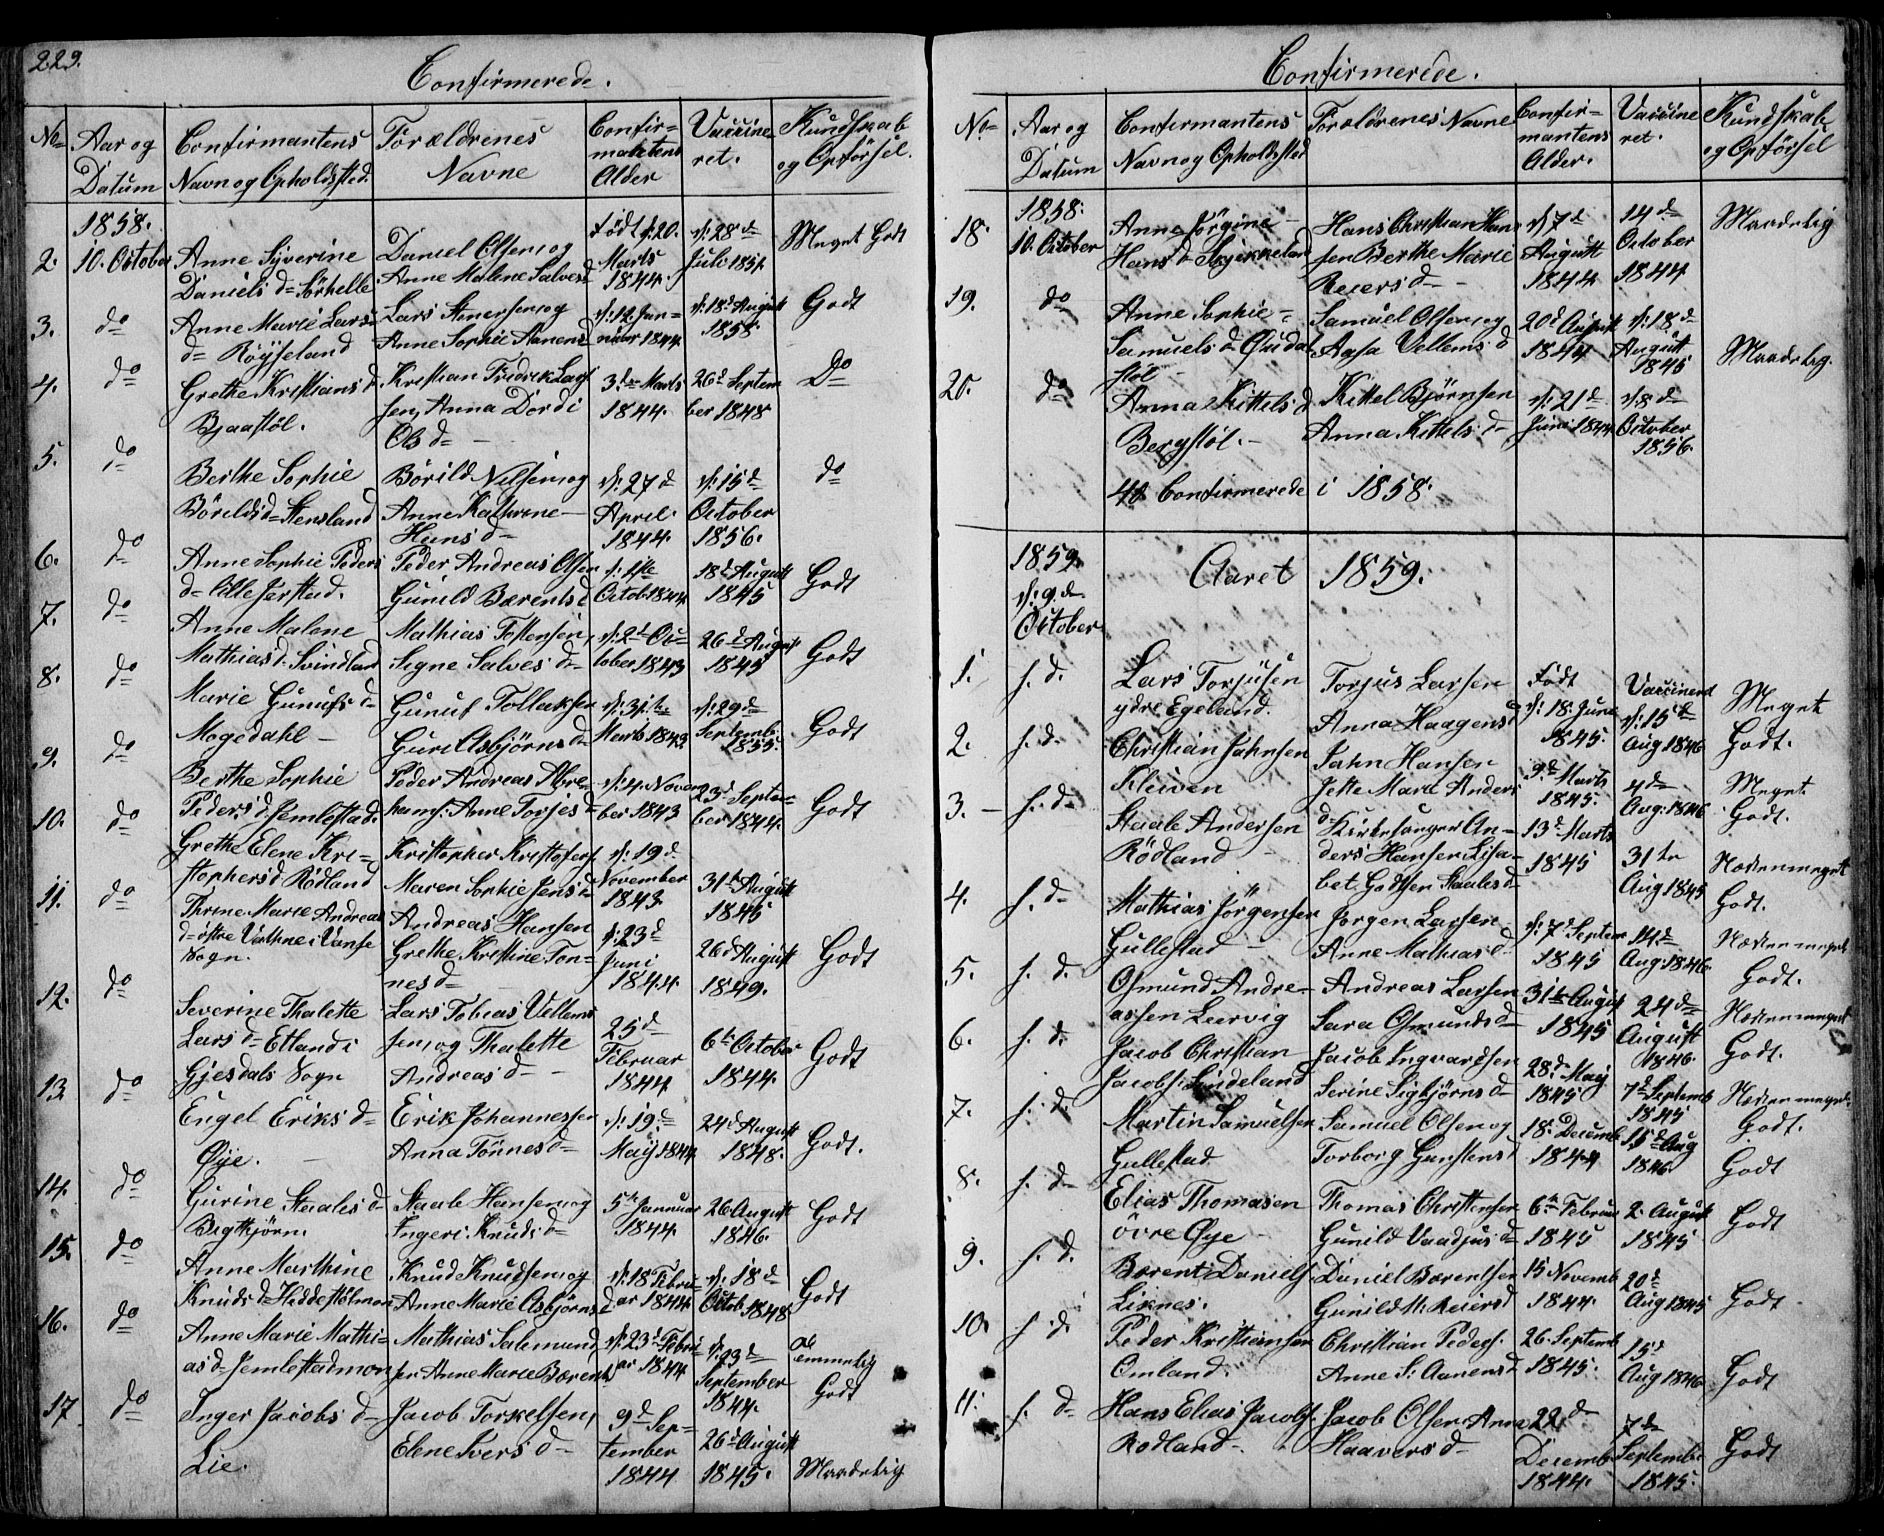 229.
Confirmerede.
No Aar og Datum Confirmantens Navn og Opholdsted. Forældrenes Navne Confirmantens Alder Vaccineret. Kundskab og Opførsel.
1858.
2. 10. October Anne Syverine Daniels d. Sörhelle Daniel Olsen og Anne Malene Salves d Födt d: 20. Marts 1844. d: 28de Juli 1851. Meget Godt
3. do Anne Marie Lars d. Röyseland Lars Stenersen og Anne Sophie Aanens d d: 12 Januar 1844. d: 18d August 1858. Godt
4. do Grethe Kristians d Bjaastöl. Kristian Fredrik Lassen, Anna Dordi Ols d. 3de Marts 1844. 26d September 1848 Do
5. do Berthe Sophie Börilds d. Stensland Börild Nilsen og Anne Kathrine Hans d. d: 27d April. 1844. d: 15d October 1856. do
6. do Anne Sophie Peders d. lille Jerstad. Peder Andreas Olsen Gunild Bærents d d: 1ste Octob 1844 18d August 1845 Godt
7. do Anne Malene Mathias d. Svindland Mathias Tostensen, Signe Salves d. d: 2d October 1843 26d August 1845 Godt
8. do Marie Gunufs d. Mogedahl Gunuf Tollaksen Guri Asbjörns d. d: 31te Marts 1843 d: 29d Septemb. 1855. Godt
9. do Berthe Sophie Peders d. Jemlestad. Peder Andreas Abrehams. Anne Torjes d. d: 4. November 1843 23d September 1844. Godt
10. do Grethe Elene Kristophers d. Rödland Kristopher Kristofers. Maren Sophie Jens d. d: 19d November 1843. 31te August 1845
11. do Thrine Marie Andreas d. östre Vathne i Vanse Sogn. Andreas Hansen Grethe Kristine Tönnes d. d: 23d Juni 1844. 26d August 1849. Godt
12. do Severine Thalette Lars d. Etland i Gjesdals Sogn Lars Tobias Vellemsen og Thalette Andreas d. 25d Februar 1844 6te October 1844. Godt
13 do Engel Eriks d. Øye. Erik Johannessen Anna Tönnes d. d: 19d May 1844 24d August 1848. Godt.
14. do Gurine Staales d. Bigtkjörn. Staale Hansen og Ingeri Knuds d. 5te Januar 1844. 26 August 1846. Godt
15. do Anne Marthine Knuds d. Heddestölmon Knud Knudsen og Anne Marie Asbjörns d d: 18 Februar 1844. d: 18d Octob 1848 Godt
16. do Anne Marie Mathias d. Jemlestadmon Mathias Salemundsen Anne Marie Bærents d d: 23d Februar 1844 d: 23d September 1844. Godt
17 do Inger Jacobs d. Lie. Jacob Torkelsen, Elene Ivers d. 9d September 1844. 26d August 1845. Maadelig
Confirmerede.
No Aar og Datum Confirmantens Navn og Opholdsted Forældrenes Navne Confirmantens Alder. Vaccineret. Kundskab og Opførsel
1858.
18. 10. October Anne Jörgine Hans d. Skjekkeland Hans Christian Hansen Berthe Marie Reiers d. d: 7d August 1844 14d October 1844 Maadelig
19. do Anne Sophie Samuels d. Quidalstöl Samuel Olsen og Aasa Vellems d 20d August 1844 d: 18d August 1845 Maadelig.
20. do Anna Kittels d Bergstöl. Kittel Björnsen Anna Kittels d. d: 21d Juni 1844 d: 8d October 1856.
40 Confirmerede i 1858.
1859. d: 9d October Aaret 1859.
1. s. d. Lars Torjusen ydre Egeland. Torjus Larsen Anna Haagens d Födt d: 18. June 1845. Vaccinered d: 15d Aug 1846 Meget Godt.
2. s. d. Christian Jahnsen Kleiven Jahn Hansen Jette Marie Anders d. 9d Marts 1845. 4d Aug. 1846 Meget Godt.
3. s. d. Staale Andersen Rödland Kirkesanger Anders Hansen Lisabet Godtsen Staales d. 13d Marts 1845 31te Aug 1845 Næsten meget Godt.
4. s. d. Mathias Jörgensen Gullestad Jörgen Larsen Anne Mathias d. d: 7d Septem 1845 14d Aug. 1846. Næsten meget Godt.
5. s. d. Osmund Andreassen Lervig Andreas Larsen Sara Osmunds d. 31te August 1845 24d August 1846. Næsten meget Godt.
6. s. d. Jacob Christian Jacobs. Lindeland Jacob Ingvardsen Serine Sigbjörns d. 28d May 1845 7d Septemb 1845 Næsten meget Godt.
7. s. d. Martin Samuelsen Gullestad Samuel Olsen og Torborg Gunstens d 18. Decemb 1844 15d Aug 1846 Godt
8. s. d. Elias Thomasen övre Øye Thomas Christensen Gunild Vaadjus d. 6te Februar 1845 2. August 1845 Godt
9. s. d. Bærent Daniels. Liknes. Daniel Bærentsen Gunild M: Reiers d 15 Novemb 1844. 20d Aug 1845 Godt
10. s. d. Peder Kristiansen Omland. Christian Peders. Anne S: Aanens d 26. Septemb 1845. 15d Aug 1846 Godt
11. s. d. Hans Elias Jacobs. Rodland. Jacob Olsen Anna Haavers d. 22d Decemb 1844. 7d Septemb. 1845. Godt